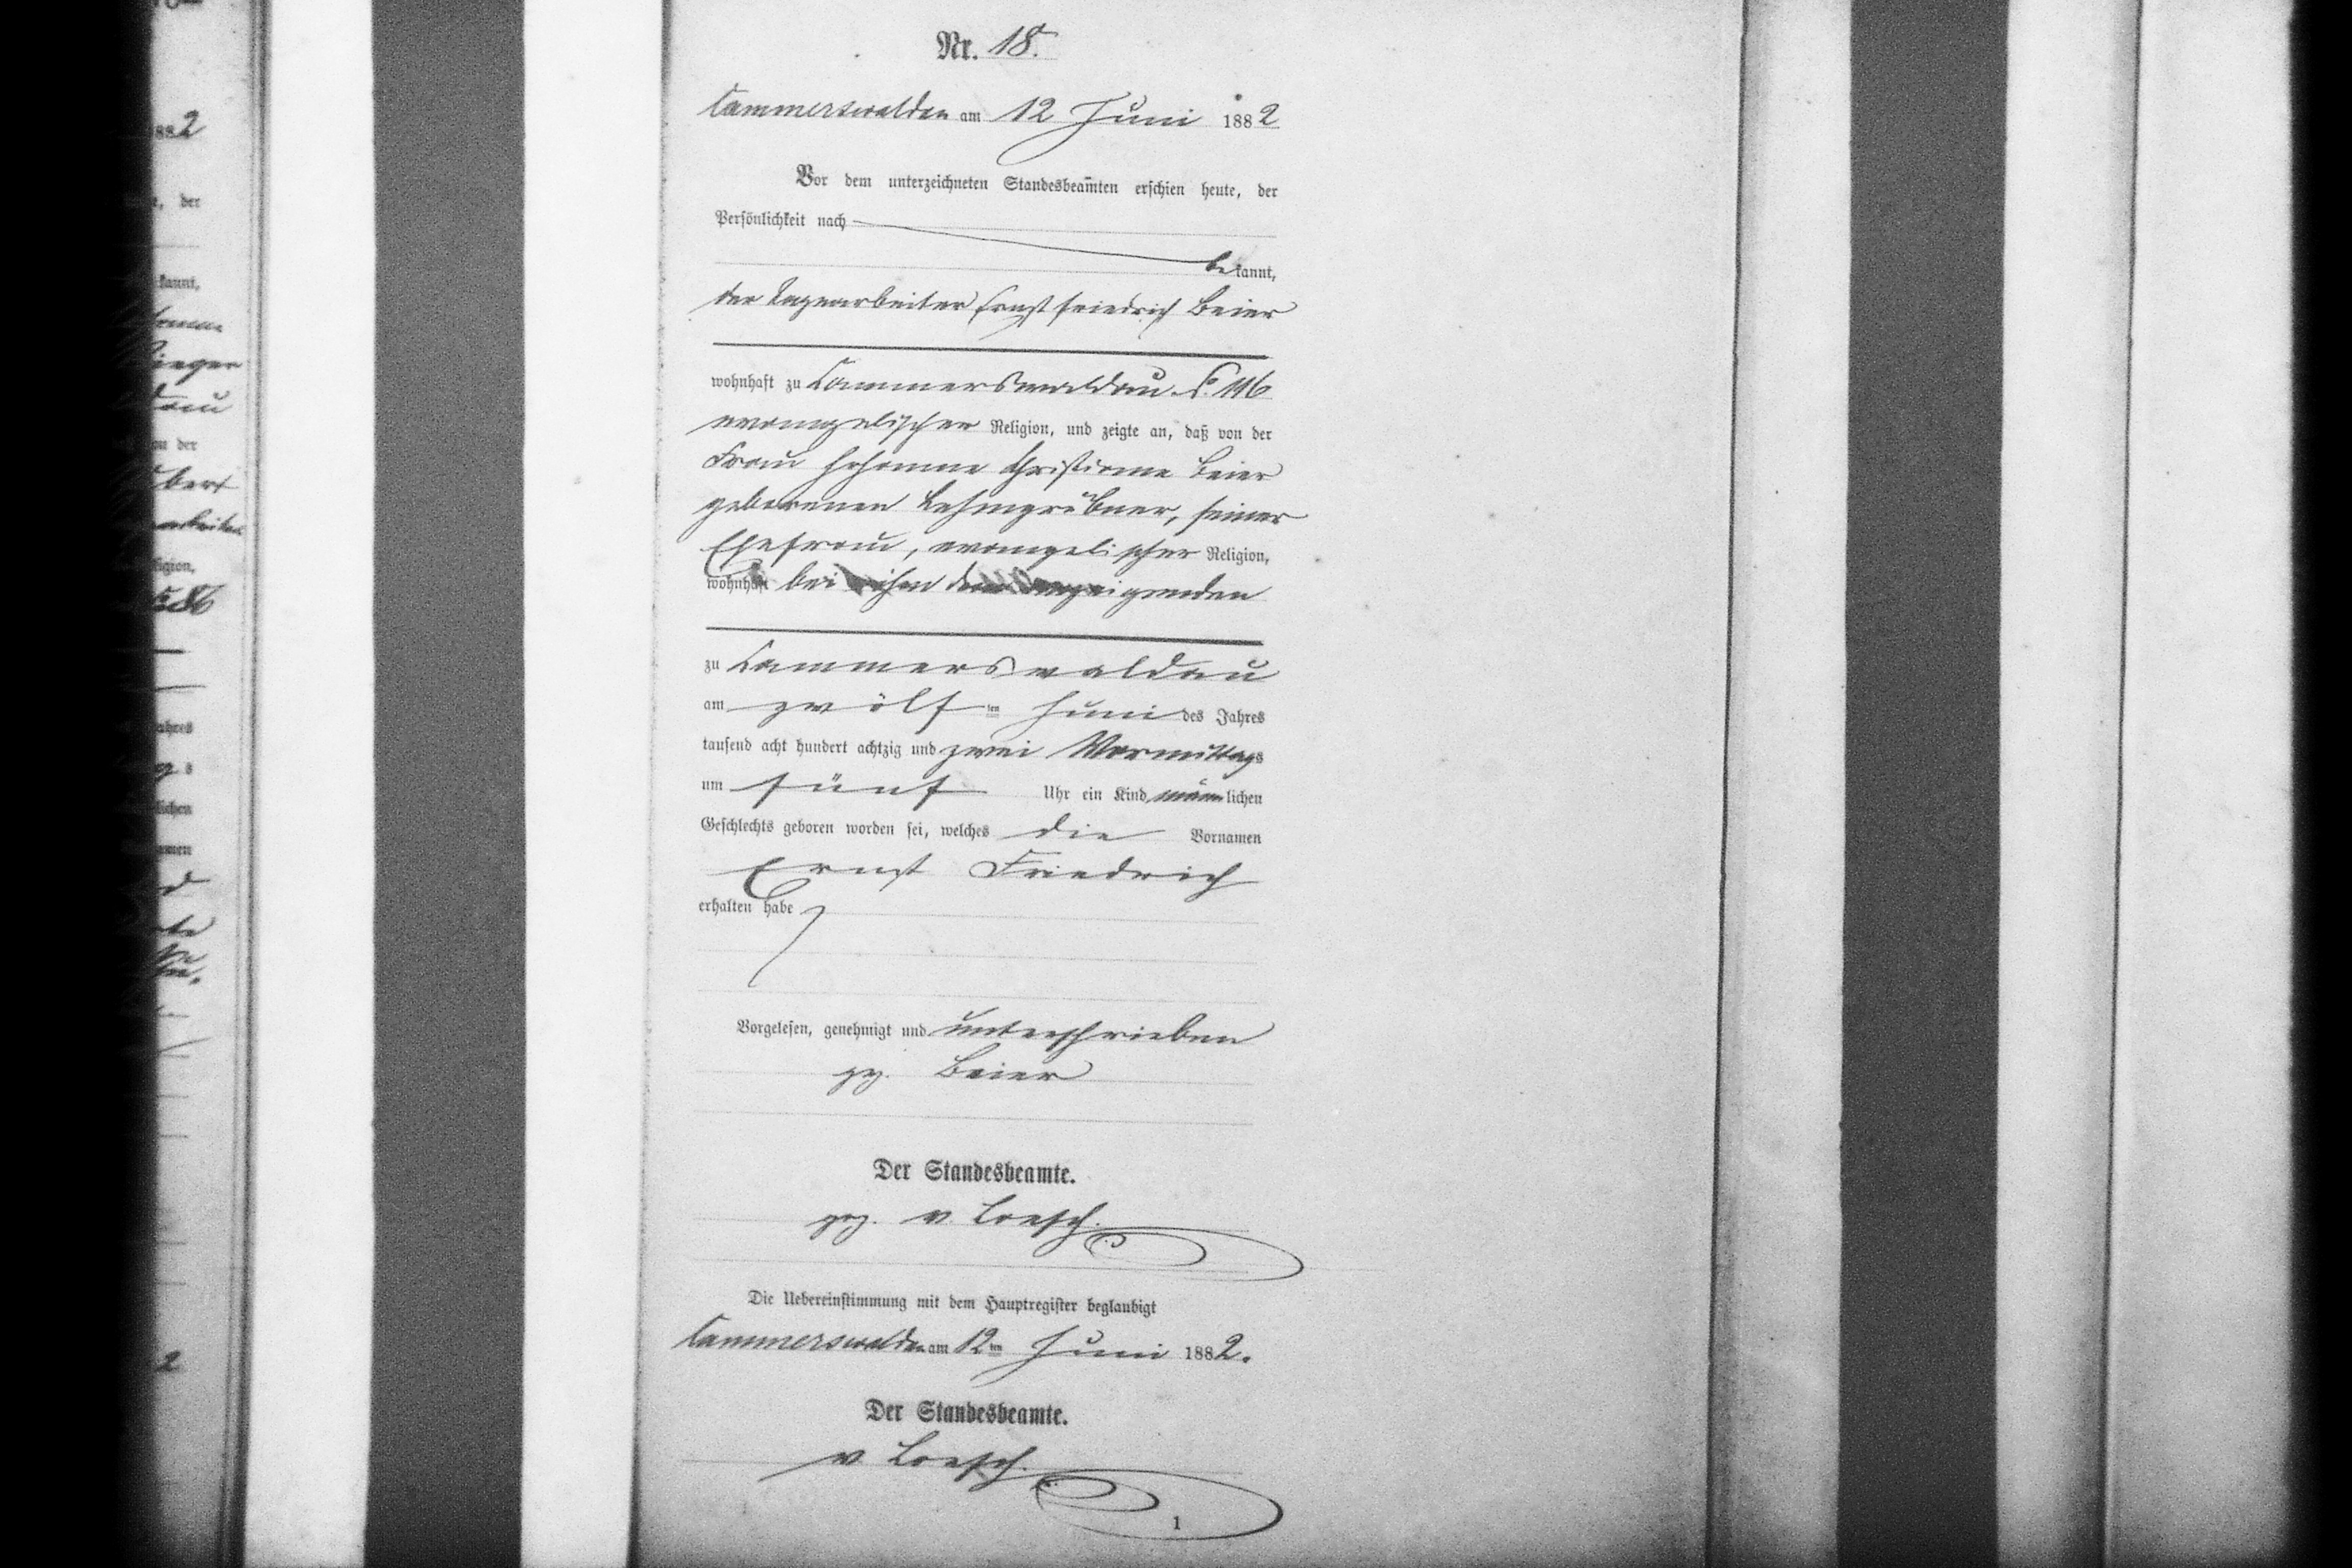 Nr. 18.
Cammerswaldau am 12 Juni 1882
Vor dem unterzeichneten Standesbeamten erschien heute, der
Persönlichkeit nach
bekannt,
der Tagearbeiter Ernst Friedrich Beier
wohnhaft zu Cammerswaldau 116
evangelischer Religion, und zeigte an, daß von der
Frau Johanne Christiane Beier
geborenen Lehmgrübner, seiner
Ehefrau, evangelischer Religion,
wohnhaft bei ihm dem Anzeigenden
zu Cammerswaldau
am zwölf ten Juni des Jahres
tausend acht hundert achtzig und zwei Vormittags
um fünf Uhr ein Kind männlichen
Geschlechts geboren worden sei, welches die Vornamen
Ernst Friedrich
erhalten habe
Vorgelesen, genehmigt und unterschrieben
gez. Beier
Der Standesbeamte.
gez. v. Loesch.
Die Uebereinstimmung mit dem Hauptregister beglaubigt
Cammerswaldau am 12 ten Juni 1882.
Der Standesbeamte.
v Loesch.
1